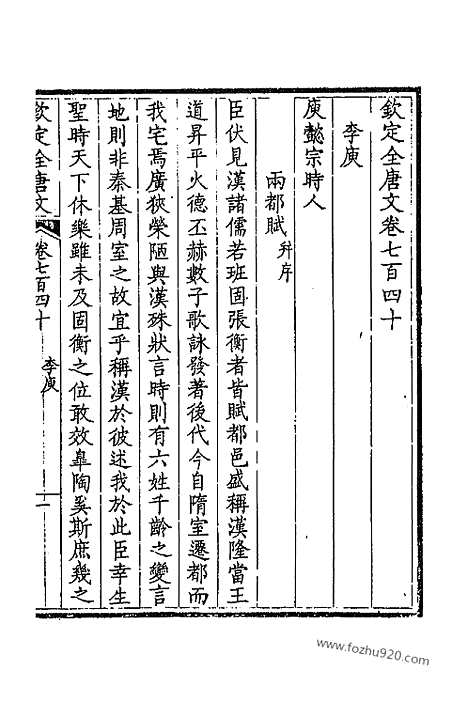 欽定全唐文卷七百四十
李庾
庾懿宗時人
兩都賦并序
臣伏見漢諸儒若班固張衡者皆賦都邑盛稱漢隆當王
道昇平火德丕赫數子歌詠發著後代今自隋室遷都而
我宅焉廣狹榮陋與漢殊狀言時則有六姓千齡之變言
地則非秦基周室之故宜乎稱漢於彼述我於此臣幸生
聖時天下休樂雖未及固衡之位敢效臯陶奚斯庶幾之
欽定全唐文
卷七百四十
李庾
一
www.fozhu920.com